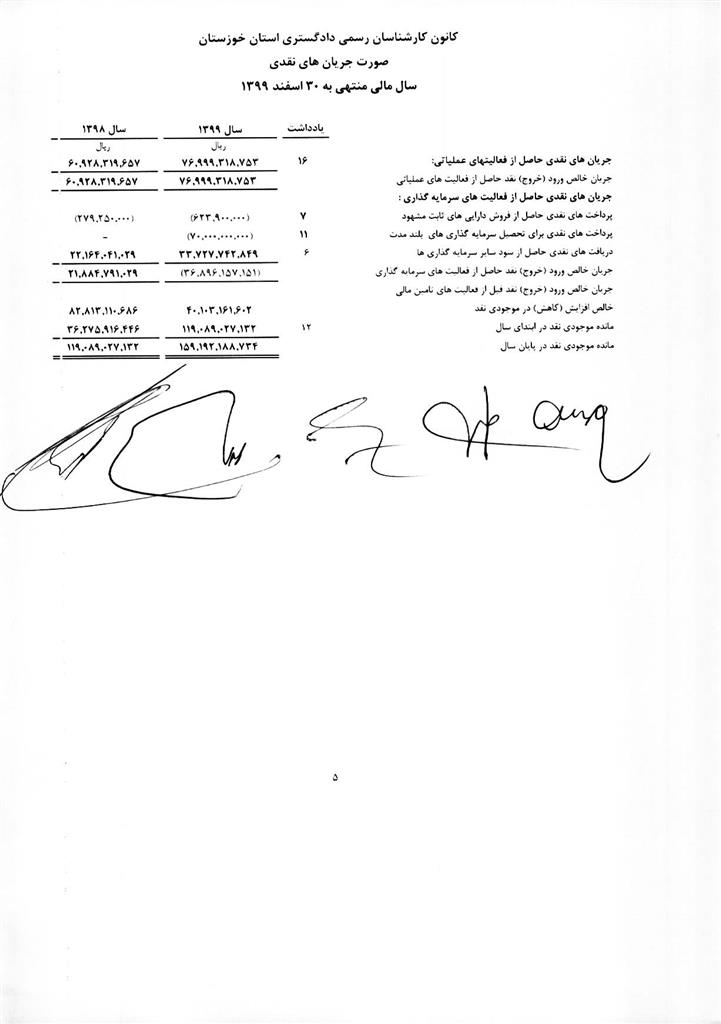 کانون کارشناسان رسمی دادگستری استان خوزستان
صورت جریان های نقدی
سال مالی منتهی به ۳۰ اسفند ۱۳۹۹
یادداشت سال ۱۳۹۹ سال ۱۳۹۸
ریال ریال
جریان های نقدی حاصل از فعالیتهای عملیاتی: ۱۶ ۷۶،۹۹۹،۳۱۸،۷۵۳ ۶۰،۹۲۸،۳۱۹،۶۵۷
جریان خالص ورود (خروج) نقد حاصل از فعالیت های عملیاتی ۷۶،۹۹۹،۳۱۸،۷۵۳ ۶۰،۹۲۸،۳۱۹،۶۵۷
جریان های نقدی حاصل از فعالیت های سرمایه گذاری :
پرداخت های نقدی حاصل از فروش دارایی های ثابت مشهود ۷ (۶۲۳،۹۰۰،۰۰۰) (۲۷۹،۲۵۰،۰۰۰)
پرداخت های نقدی برای تحصیل سرمایه گذاری های بلند مدت ۱۱ (۷۰،۰۰۰،۰۰۰،۰۰۰) -
دریافت های نقدی حاصل از سود سایر سرمایه گذاری ها ۶ ۳۳،۷۲۷،۷۴۲،۸۴۹ ۲۲،۱۶۴،۰۴۱،۰۲۹
جریان خالص ورود (خروج) نقد حاصل از فعالیت های سرمایه گذاری (۳۶،۸۹۶،۱۵۷،۱۵۱) ۲۱،۸۸۴،۷۹۱،۰۲۹
جریان خالص ورود (خروج) نقد قبل از فعالیت های تامین مالی
خالص افزایش (کاهش) در موجودی نقد ۴۰،۱۰۳،۱۶۱،۶۰۲ ۸۲،۸۱۳،۱۱۰،۶۸۶
مانده موجودی نقد در ابتدای سال ۱۲ ۱۱۹،۰۸۹،۰۲۷،۱۳۲ ۳۶،۲۷۵،۹۱۶،۴۴۶
مانده موجودی نقد در پایان سال ۱۵۹،۱۹۲،۱۸۸،۷۳۴ ۱۱۹،۰۸۹،۰۲۷،۱۳۲
۵